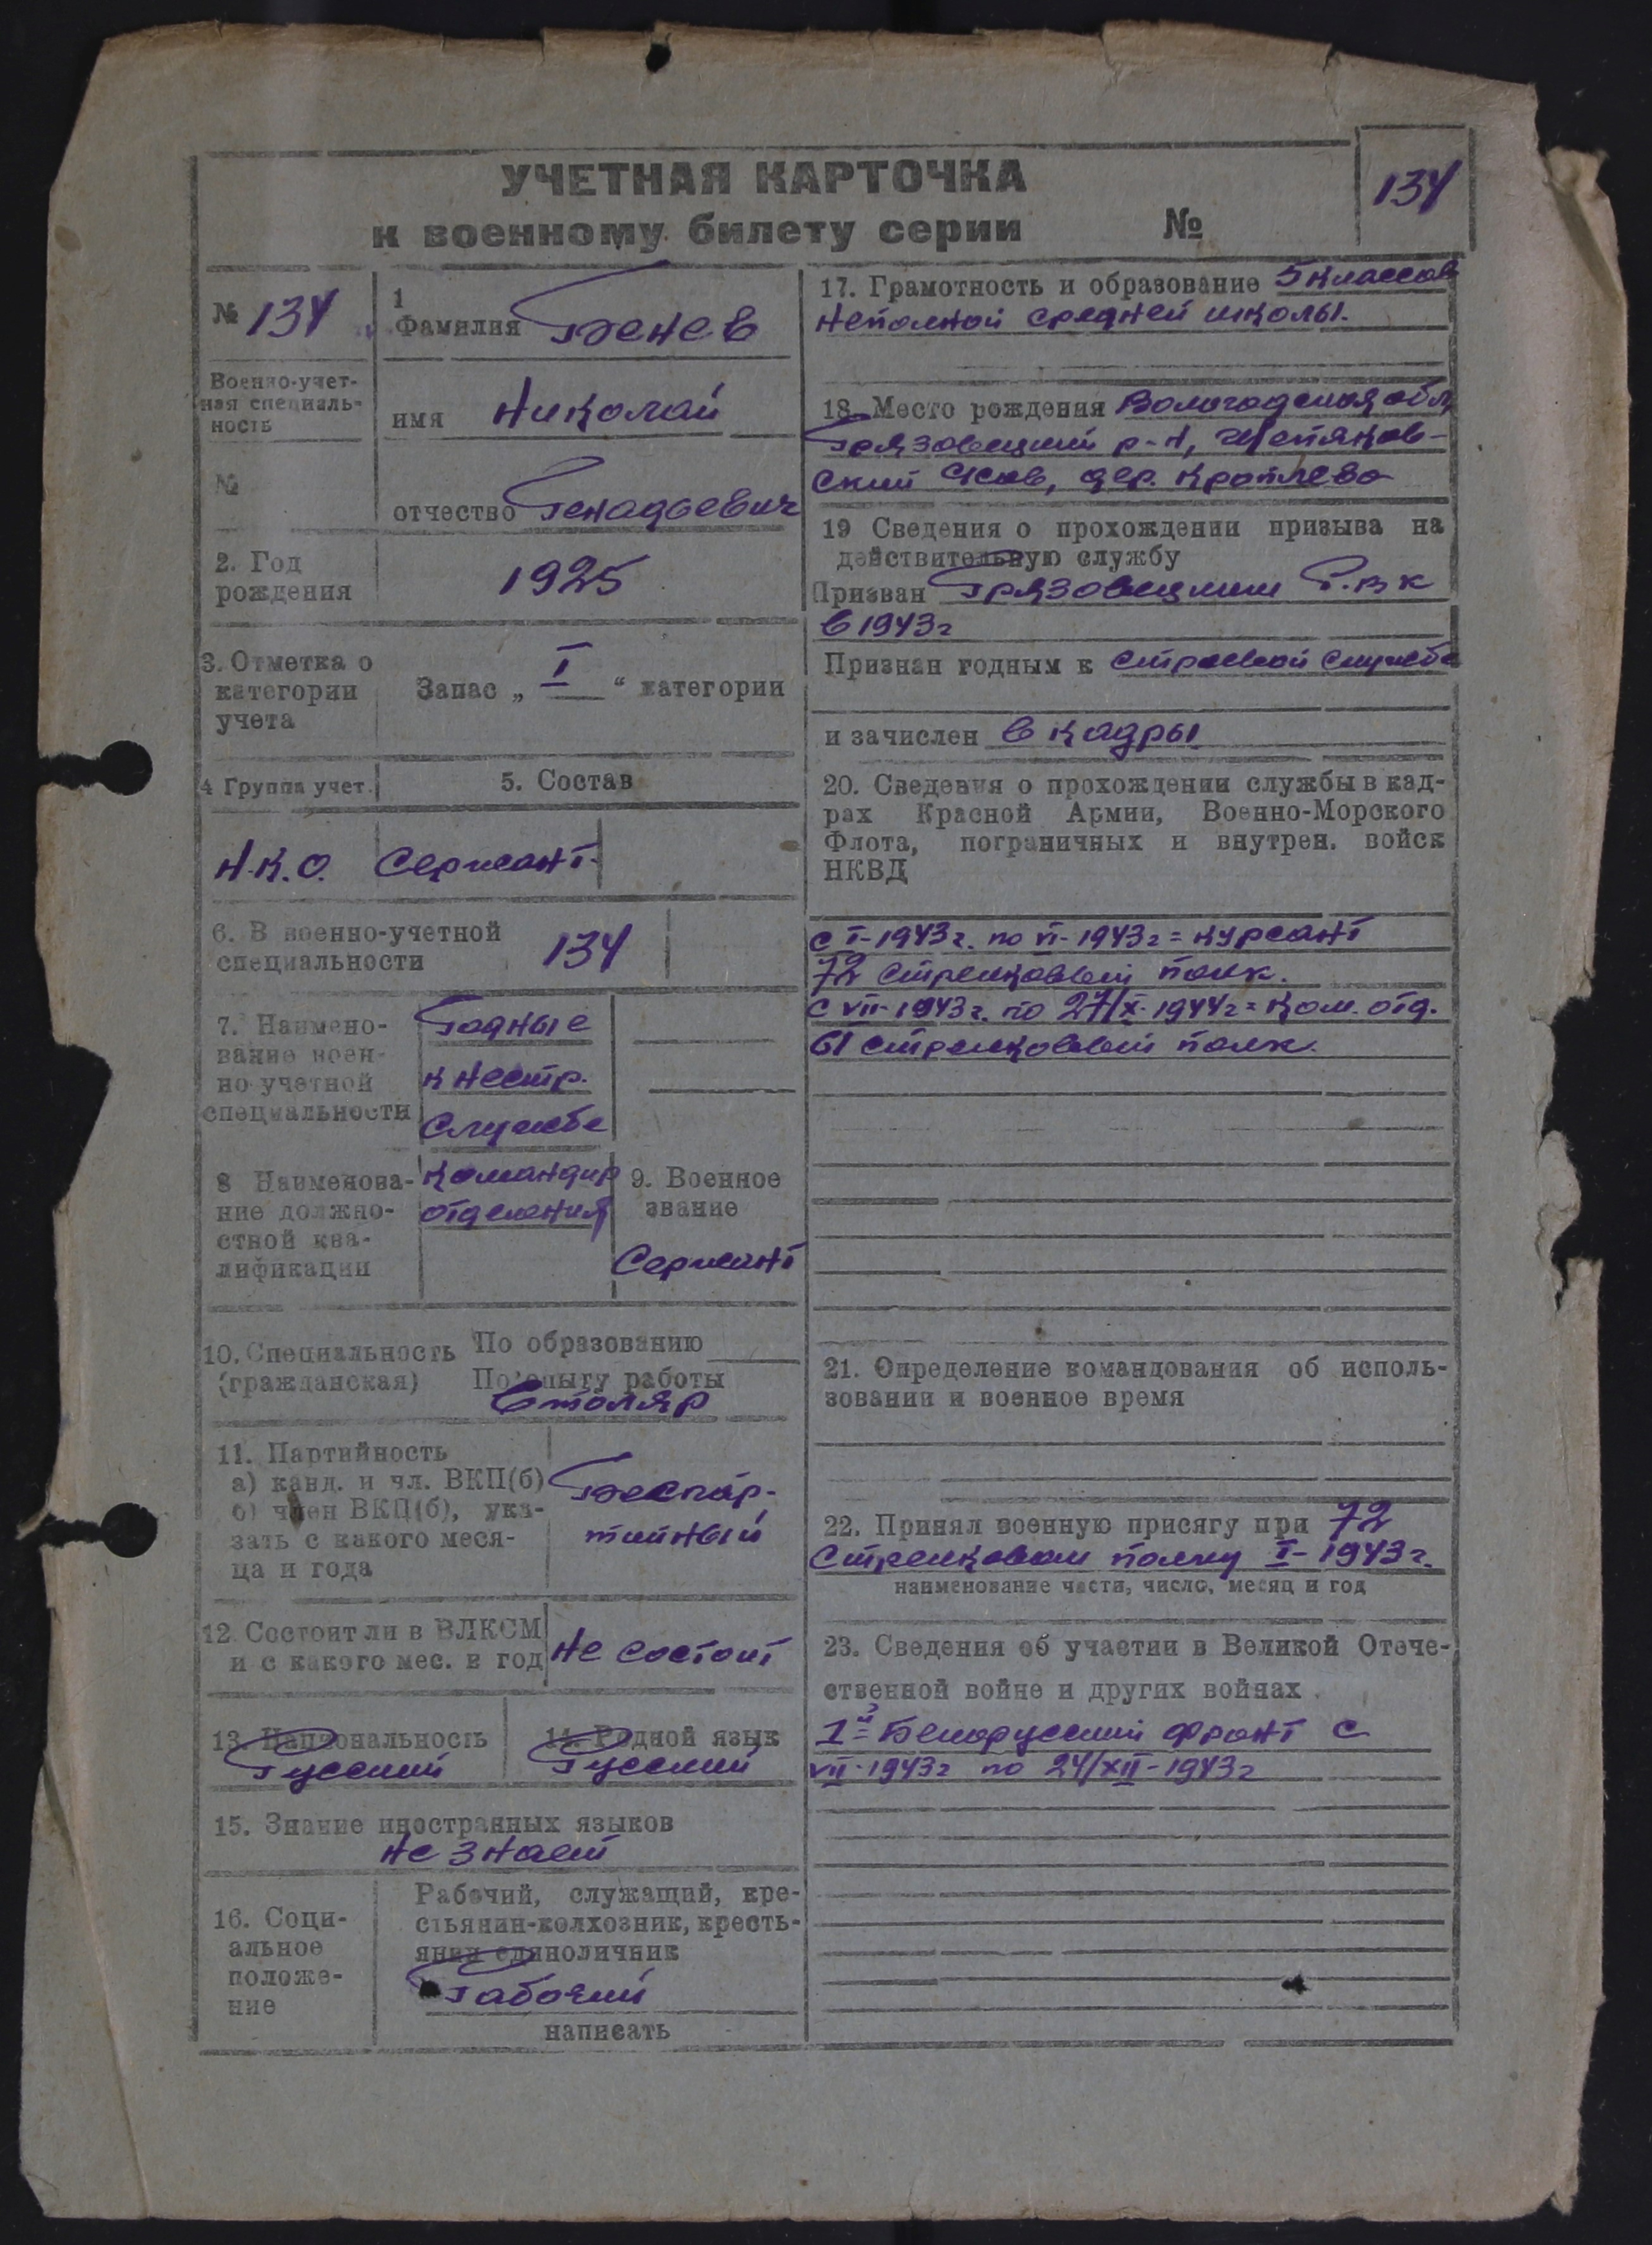 УЧЕТНАЯ КАРТОЧКА
к военному билету серии №
134
№ 134
Военно-учет-
ная специаль-
ность
№
1
Фамилия Бенев
имя Николай
отчество Генадьевич
2. Год
рождения
1925
3. Отметка о
категории
учета
Запас „ I “ категории
4 Группа учет.
5. Состав
Н.К.О.
Сержант
6. В военно-учетной
специальности
134
7. Наимено-
вание воен-
но-учетной
специальности
Годные
к нестр.
службе
8 Наименова-
ние должно-
стной ква-
лификации
командир
отделения
9. Военное
звание
Сержант
10. Специальность
(гражданская)
По образованию
По опыту работы
Столяр
11. Партийность
а) канд. и чл. ВКП(б)
б) член ВКП(б), ука-
зать с какого меся-
ца и года
Беспар-
тийный
12 Состоит ли в ВЛКСМ
и с какого мес. и год
не состоит
13. Национальность
Русский
14. Родной язык
Русский
15. Знание иностранных языков
не знает
16. Соци-
альное
положе-
ние
Рабочий, служащий, кре-
стьянин-колхозник, кресть-
янин единоличник
Рабочий
написать
17. Грамотность и образование 5 классов
неполной средней школы.
18. Место рождения Вологодская обл
Грязовецкий р-н,
ский с/сов, дер.
19 Сведения о прохождении призыва на
действительную службу
Призван Грязовецким Р.В.К
в 1943г
Признан годным к строевой службе
и зачислен в кадры
20. Сведения о прохождении службы в кад-
рах Красной Армии, Военно-Морского
Флота, пограничных и внутрен. войск
НКВД
с I-1943г. по VI-1943г = курсант
72 стрелковый полк.
с VII-1943г. по 27/X-1944г = ком. отд.
61 стрелковый полк.
21. Определение командования об исполь-
зовании в военное время
22. Принял военную присягу при 72
стрелковом полку I-1943г.
наименование части, число, месяц и год
23. Сведения об участии в Великой Отече-
ственной войне и других войнах
1й Белорусский фронт с
VII-1943г по 24/XII-1943г